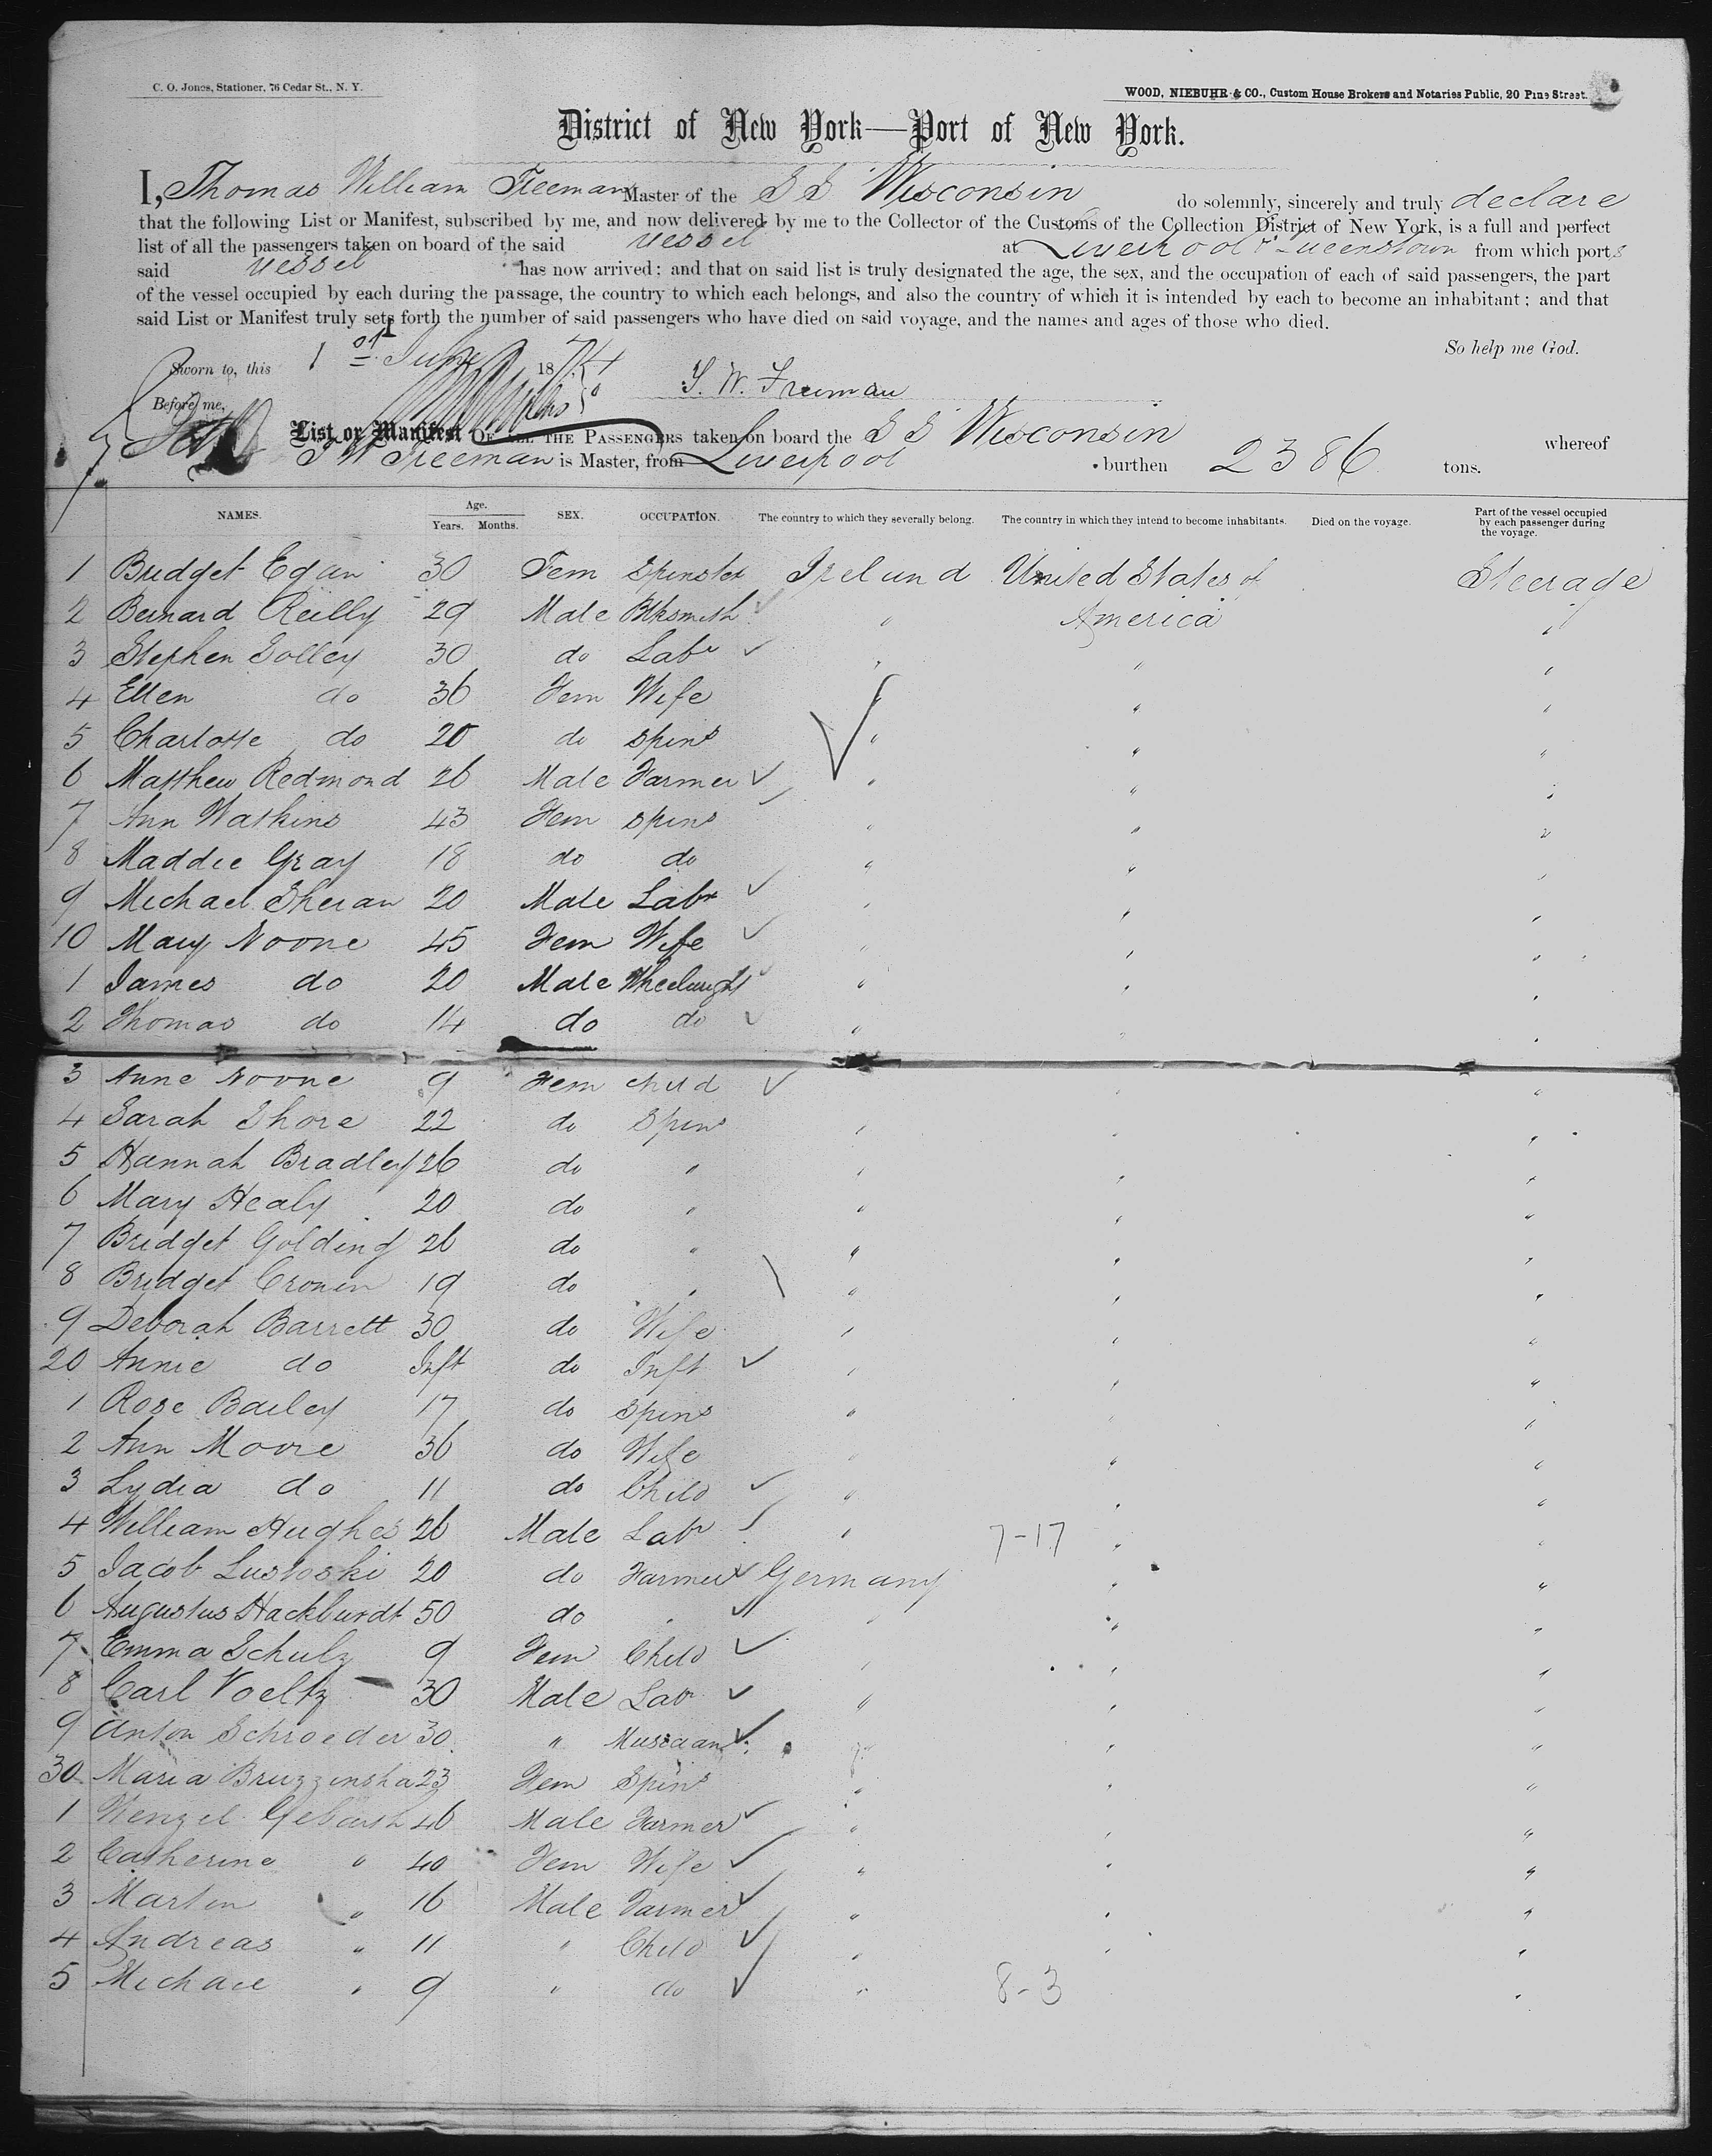 C. O. Jones, Stationer, 76 Cedar St., N. Y.
WOOD, NIEBUHR & CO., Custom House Brokers and Notaries Public, 20 Pine Street.
District of New York—Port of New York.
I, Thomas William Freeman Master of the S S Wisconsin do solemnly, sincerely and truly declare
that the following List or Manifest, subscribed by me, and now delivered by me to the Collector of the Customs of the Collection District of New York, is a full and perfect
list of all the passengers taken on board of the said vessel at Liverpool & Queenstown from which ports
said vessel has now arrived: and that on said list is truly designated the age, the sex, and the occupation of each of said passengers, the part
of the vessel occupied by each during the passage, the country to which each belongs, and also the country of which it is intended by each to become an inhabitant; and that
said List or Manifest truly sets forth the number of said passengers who have died on said voyage, and the names and ages of those who died.
So help me God.
Sworn to, this 1st June 1874
T. W. Freeman
Before me,
List or Manifest OF ALL THE PASSENGERS taken on board the S S Wisconsin whereof
T W Freeman is Master, from Liverpool burthen 2386 tons.
NAMES. Age. Years. Months. SEX. OCCUPATION. The country to which they severally belong. The country in which they intend to become inhabitants. Died on the voyage. Part of the vessel occupied by each passenger during the voyage.
1 Bridget Egan 30 Fem Spinster Ireland United States of Steerage
2 Bernard Reilly 29 Male Blksmith " America "
3 Stephen Golley 30 do Labr " " "
4 Ellen do 36 Fem Wife " " "
5 Charlotte do 20 do Spins " " "
6 Matthew Redmond 26 Male Farmer " " "
7 Ann Watkins 43 Fem Spins " " "
8 Maddie Gray 18 do do " " "
9 Michael Sheran 20 Male Labr " " "
10 Mary Noone 45 Fem Wife " " "
1 James do 20 Male Wheelwright " " "
2 Thomas do 14 do do " " "
3 Anne Noone 9 Fem Child " "
4 Sarah Shore 22 do Spins " " "
5 Hannah Bradley 26 do " " " "
6 Mary Healy 20 do " " " "
7 Bridget Golding 26 do " " " "
8 Bridget Cronin 19 do " " " "
9 Deborah Barrett 30 do Wife " " "
20 Annie do Inft do Inft " " "
1 Rose Bailey 17 do Spins " " "
2 Ann Moore 36 do Wife " " "
3 Lydia do 11 do Child " " "
4 William Hughes 26 Male Labr " 7-17 " "
5 Jacob Lustoski 20 do Farmer Germany " "
6 Augustus Hackburdt 50 do " " " "
7 Emma Schulz 9 Fem Child " " "
8 Carl Voeltz 30 Male Labr " " "
9 Anton Schroeder 30 " Musician " " "
30 Maria Bruzzinsha 23 Fem Spins " " "
1 Wenzel Gebarsh 46 Male Farmer " " "
2 Catherine " 40 Fem Wife " " "
3 Martin " 16 Male Farmer " " "
4 Andreas " 11 " Child " " "
5 Michael " 9 " do " 8-3 "